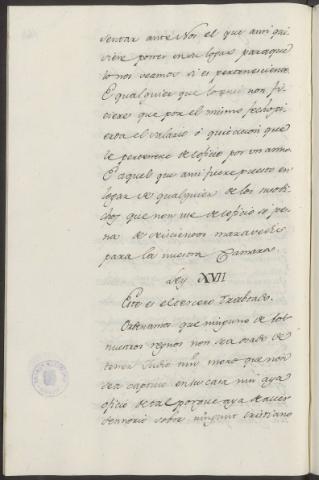 sentar ante Nos el que ansi qui
siere poner en su logar para que
lo nos veamos si es perteneciente
E qualquier que lo ansi non fi
ciere que por el mismo fecho pi
erda el salario ó quitacion que
le pertenece de oficio por un anno
E aquel que ansi fuere puesto en
logar de qualquier de los susodi
chos que non use de oficio so pe
na de seiscientos maravedis
para la nuestra Camara.
Ley XVII
Este es el tercero Traslado.
Ordenamos que ninguno de los
nuestros regnos non sea osado de
tener Judio nin moro que non
sea captivo en su casa nin aya
oficio de tal porque aya de aver
sennorio sobre ningunt cristiano